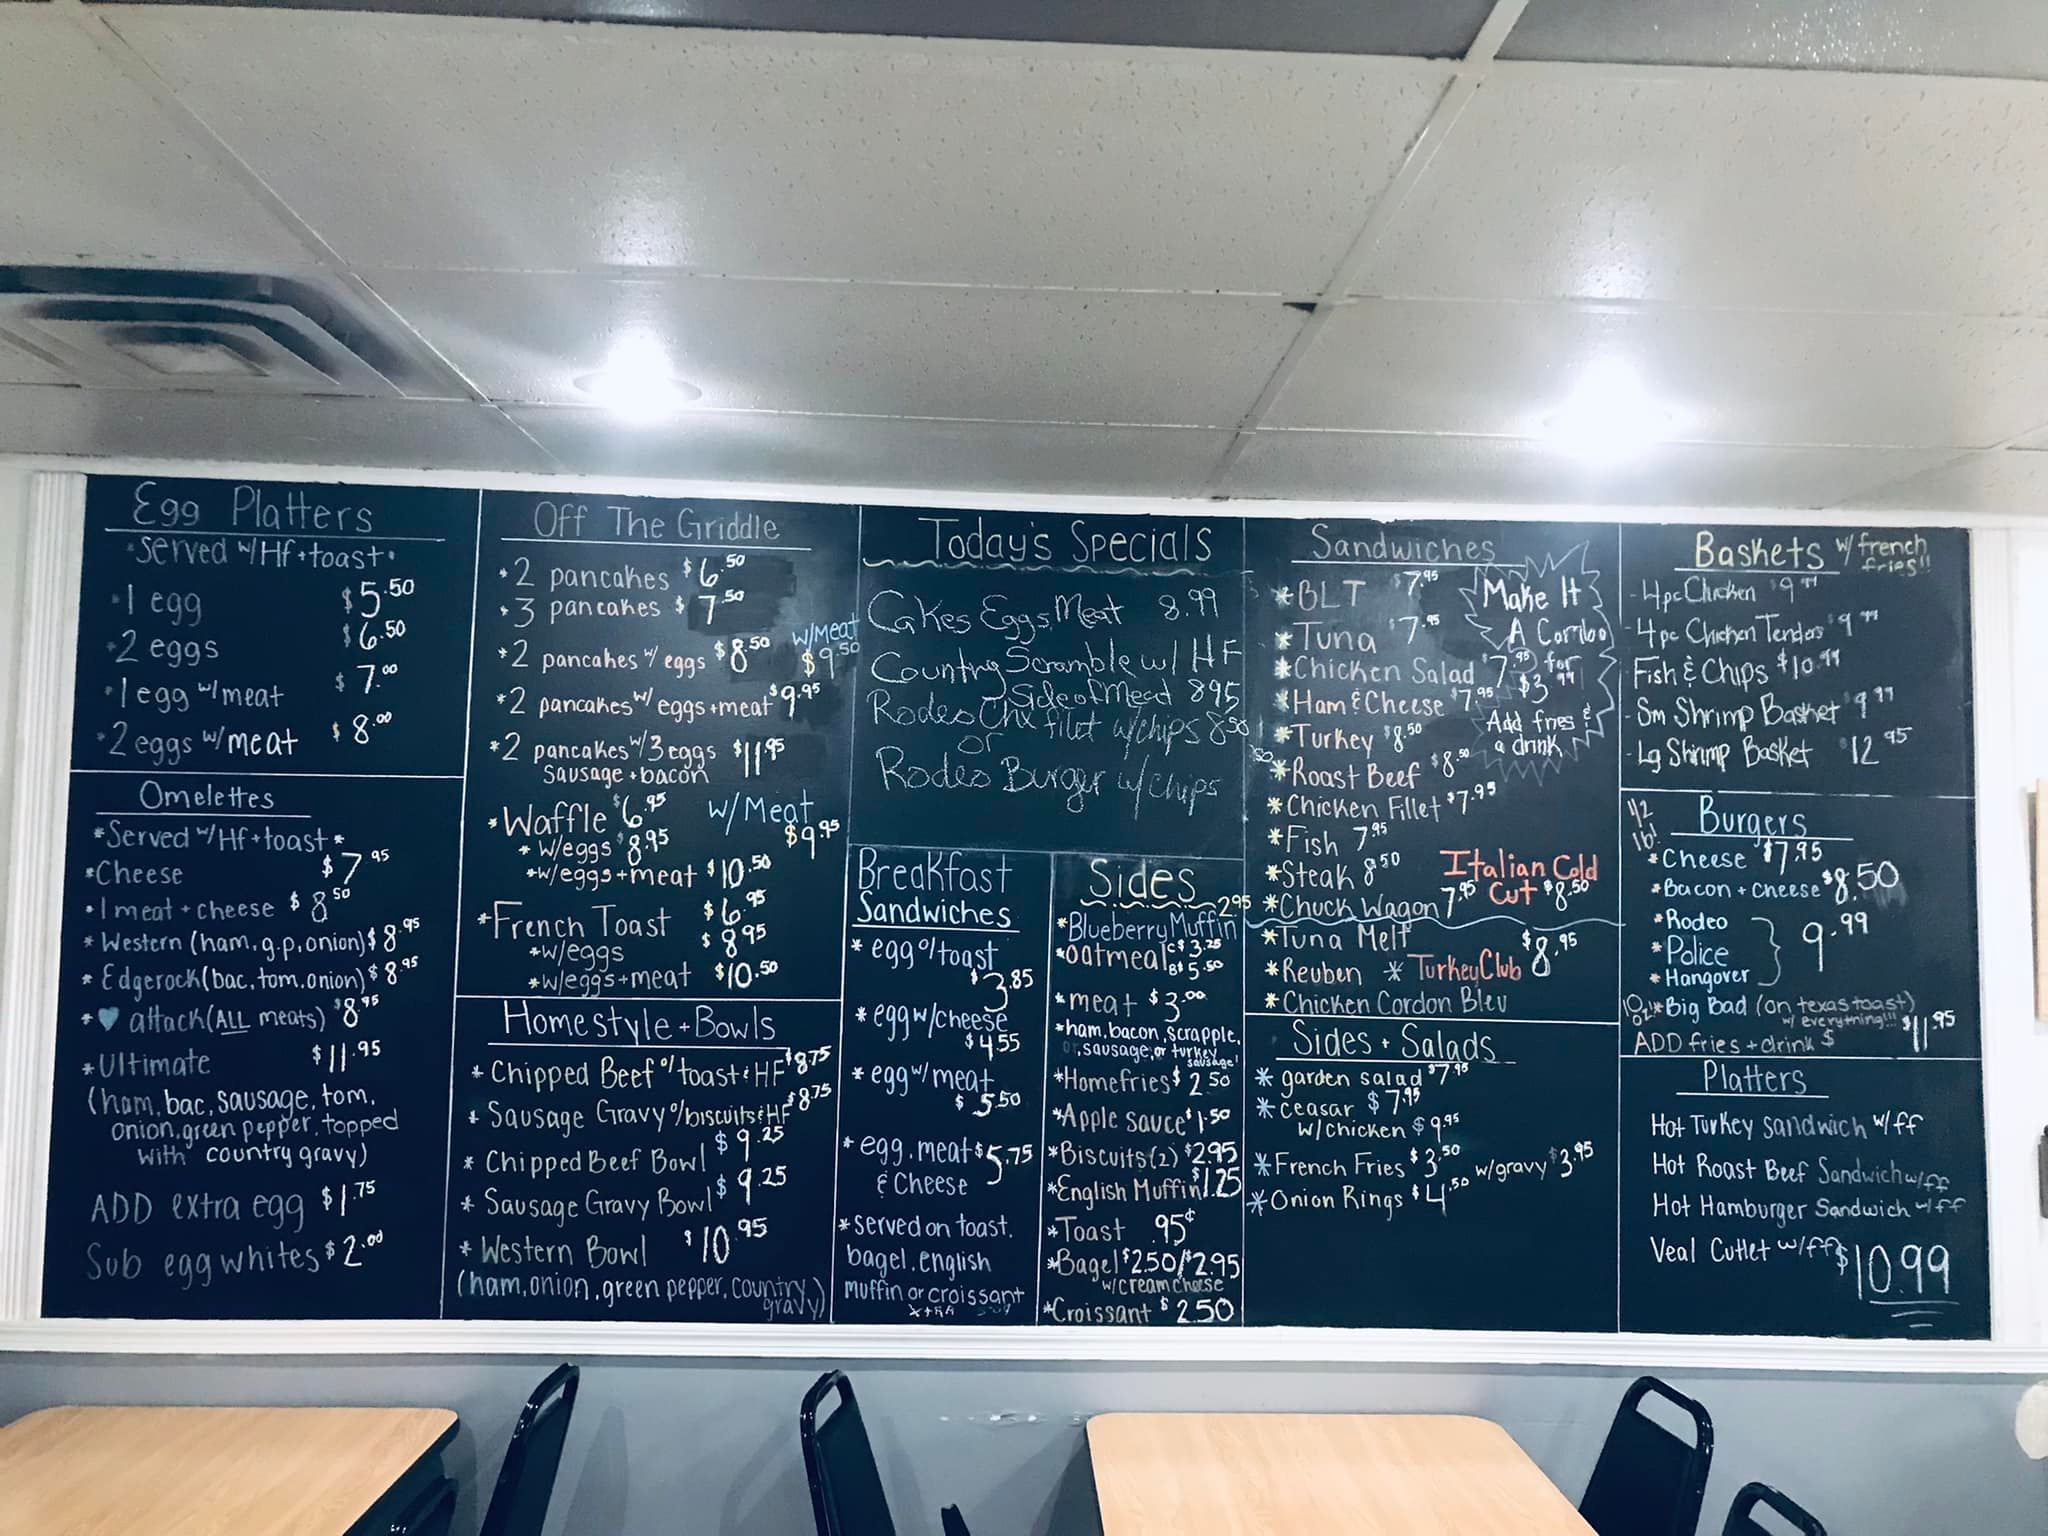 Egg Platters
*served w/Hf+toast*
*1 egg $5.50
*2 eggs $6.50
*1 egg w/meat $7.00
*2 eggs w/meat $8.00
Omelettes
*Served w/Hf+toast*
*Cheese $7.95
*1 meat + cheese $8.50
*Western (ham, g.p, onion) $8.95
*Edgerock (bac, tom, onion) $8.95
*♥ attack (ALL meats) $8.95
*Ultimate $11.95
(ham, bac, sausage, tom,
onion, green pepper, topped
with country gravy)
ADD extra egg $1.75
Sub egg whites $2.00
Off The Griddle
*2 pancakes $6.50
*3 pancakes $7.50
*2 pancakes w/ eggs $8.50 w/Meat $9.50
*2 pancakes w/ eggs+meat $9.95
*2 pancakes w/3 eggs $11.95
sausage + bacon
*Waffle $6.95 w/Meat $9.95
*w/eggs $8.95
*w/eggs+meat $10.50
*French Toast $6.95
*w/eggs $8.95
*w/eggs+meat $10.50
Homestyle + Bowls
*Chipped Beef o/toast & HF $8.75
*Sausage Gravy o/biscuits & HF $8.75
*Chipped Beef Bowl $9.25
*Sausage Gravy Bowl $9.25
*Western Bowl $10.95
(ham, onion, green pepper, country
gravy)
Today's Specials
Cakes Eggs Meat 8.99
Country Scramble w/ HF
Side of Meat 895
Rodeo Chx fillet w/chips 8.50
or
Rodeo Burger w/chips
Breakfast
Sandwiches
*egg o/toast
$3.85
*egg w/cheese
$4.55
*egg w/meat
$5.50
*egg, meat $5.75
& Cheese
*served on toast,
bagel, english
muffin or croissant
xtra
Sides
*Blueberry Muffin 2.95
*oatmeal C $3.25
B $5.50
*meat $3.00
*ham, bacon, scrapple,
or, sausage, or turkey
sausage!
*Homefries $2.50
*Apple sauce $1.50
*Biscuits (2) $2.95
*English Muffin $1.25
*Toast .95¢
*Bagel $2.50/$2.95
w/cream cheese
*Croissant $2.50
Sandwiches
*BLT $7.95
*Tuna $7.95
*Chicken Salad $7.95
*Ham & Cheese $7.95
*Turkey $8.50
*Roast Beef $8.50
*Chicken Fillet $7.95
*Fish 7.95
*Steak 8.50
*Chuck Wagon 7.95
Make It
A Combo
for
$3.99
Add fries &
a drink
Italian Cold
Cut $8.50
*Tuna Melt $8.95
*Reuben *Turkey Club
*Chicken Cordon Bleu
Sides + Salads
*garden salad $7.95
*ceasar $7.95
w/chicken $9.95
*French Fries $3.50 w/gravy $3.95
*Onion Rings $4.50
Baskets w/ french
fries!!
-4pc Chicken $9.99
-4 pc Chicken Tenders 9.99
Fish & Chips $10.99
-Sm Shrimp Basket 9.99
-Lg Shrimp Basket $12.95
1/2
lb!
Burgers
*Cheese $7.95
*Bacon + cheese $8.50
*Rodeo
*Police 9.99
*Hangover
10
oz!*Big Bad (on texas toast)
w/ everything!!! $11.95
ADD fries + drink $
Platters
Hot Turkey Sandwich w/ff
Hot Roast Beef Sandwich w/ff
Hot Hamburger Sandwich w/ff
Veal Cutlet w/ff $10.99